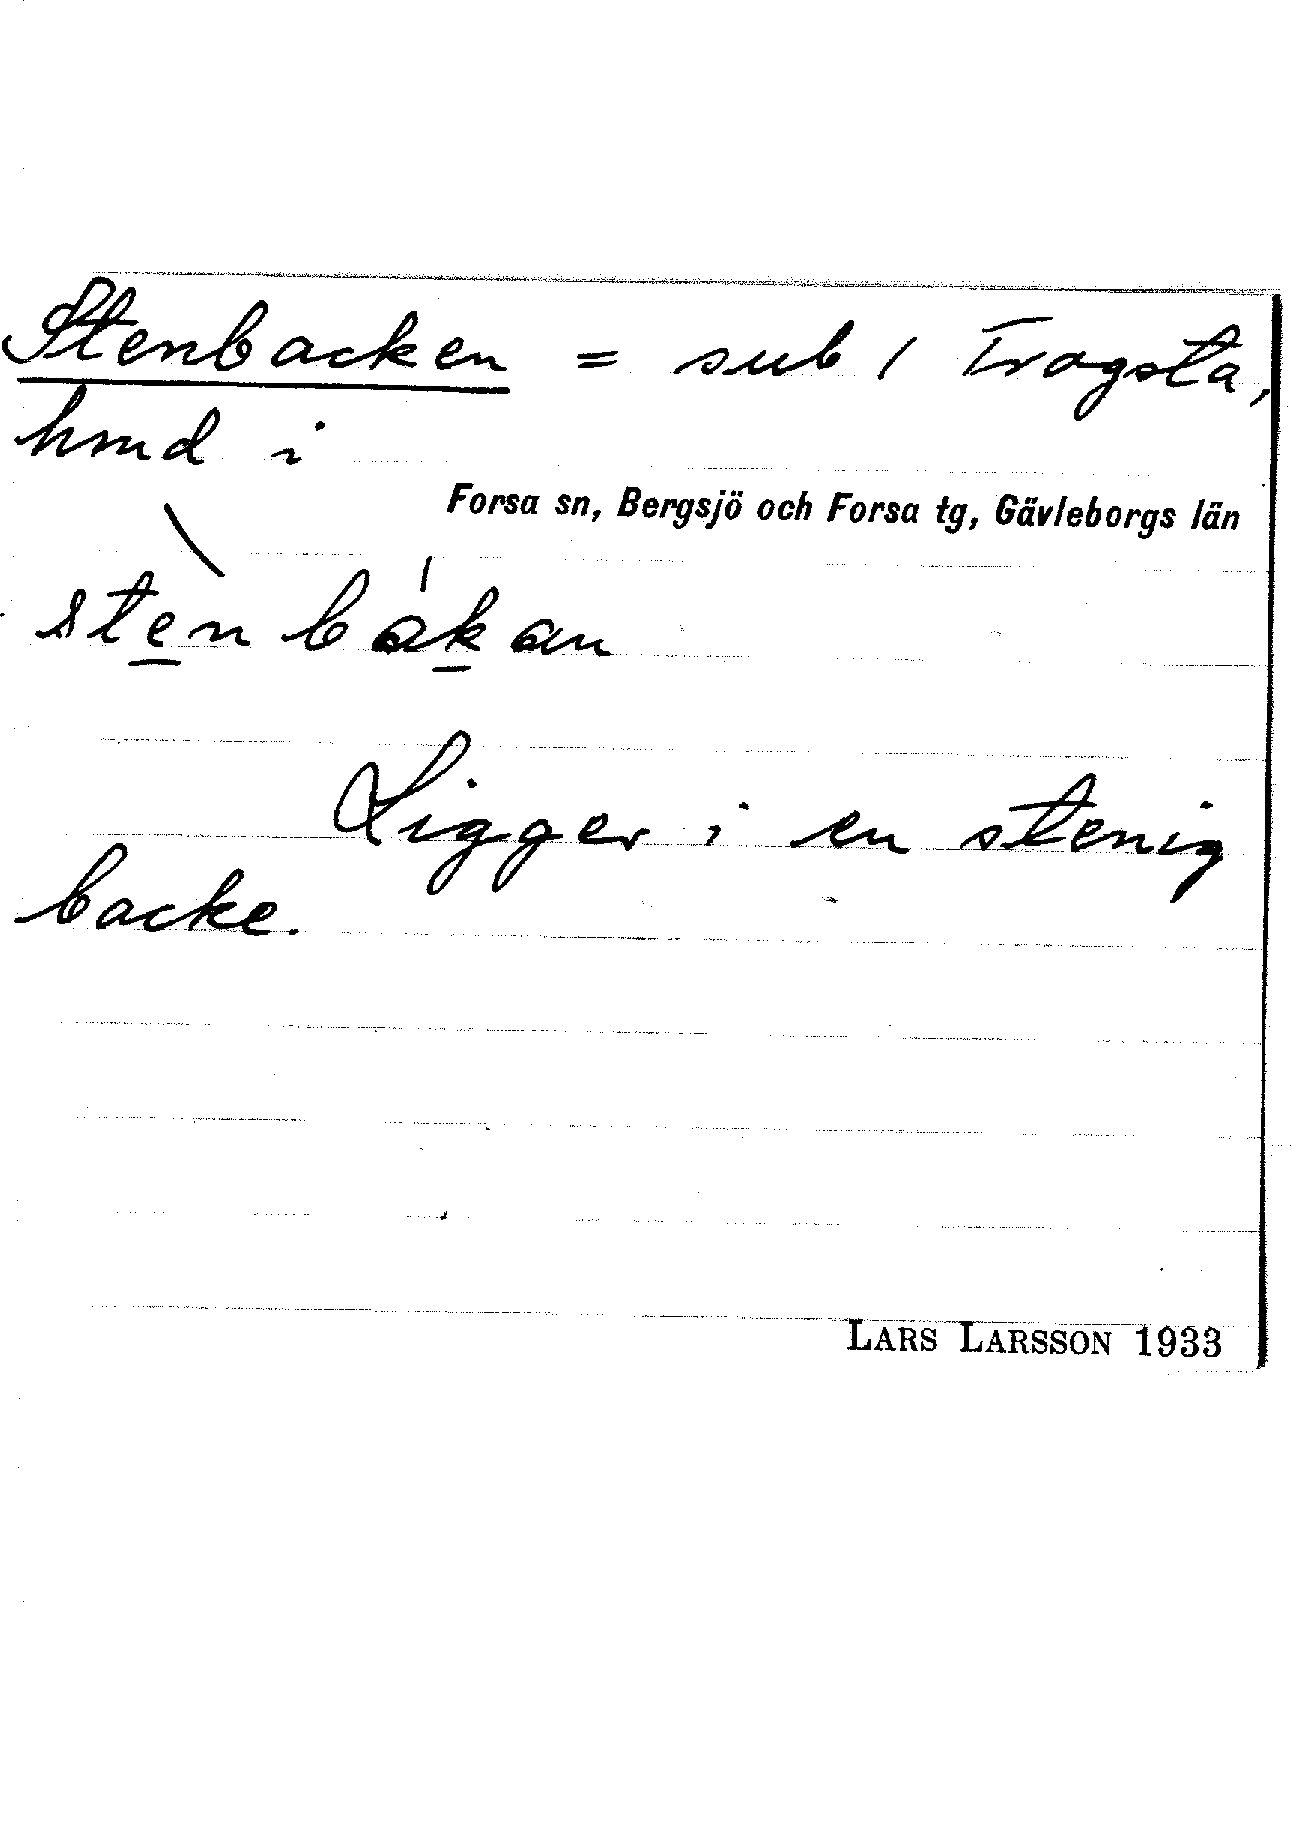 Stenbacken = sub / Trogsta,
hmd i
Forsa sn, Bergsjö och Forsa tg, Gävleborgs län
stenbakan
Ligger i en stenig
backe.
LARS LARSSON 1933